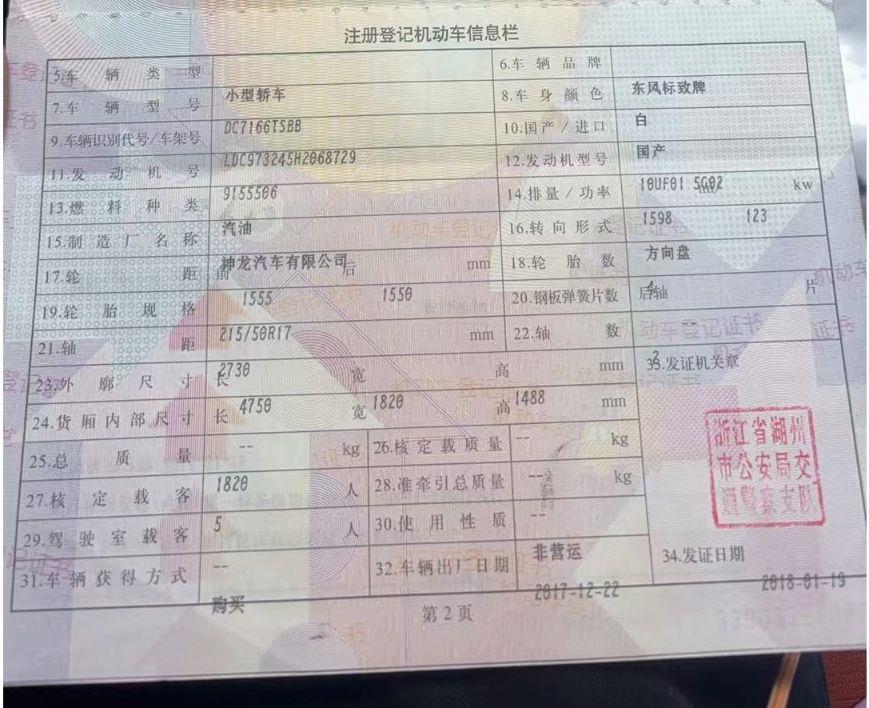 注册登记机动车信息栏
5.车辆类型 小型轿车 6.车辆品牌 东风标致牌
7.车辆型号 DC7166TSBB 8.车身颜色 白
9.车辆识别代号/车架号 LDC973245H2068729 10.国产/进口 国产
11.发动机号 9155506 12.发动机型号 10UF01 5G02
13.燃料种类 汽油 14.排量/功率 1598 ml/ 123 kw
15.制造厂名称 神龙汽车有限公司 16.转向形式 方向盘
17.轮距 前 1555 后 1550 mm 18.轮胎数 4
19.轮胎规格 215/50R17 20.钢板弹簧片数 后轴 -- 片
21.轴距 2730 mm 22.轴数 2
23.外廓尺寸 长 4750 宽 1820 高 1488 mm 33.发证机关章
24.货厢内部尺寸 长 -- 宽 -- 高 -- mm
浙江省湖州
市公安局交
通警察支队
25.总质量 1820 kg 26.核定载质量 -- kg
27.核定载客 5 人 28.准牵引总质量 -- kg
29.驾驶室载客 -- 人 30.使用性质 非营运
31.车辆获得方式 购买 32.车辆出厂日期 2017-12-22 34.发证日期 2018-01-19
第2页